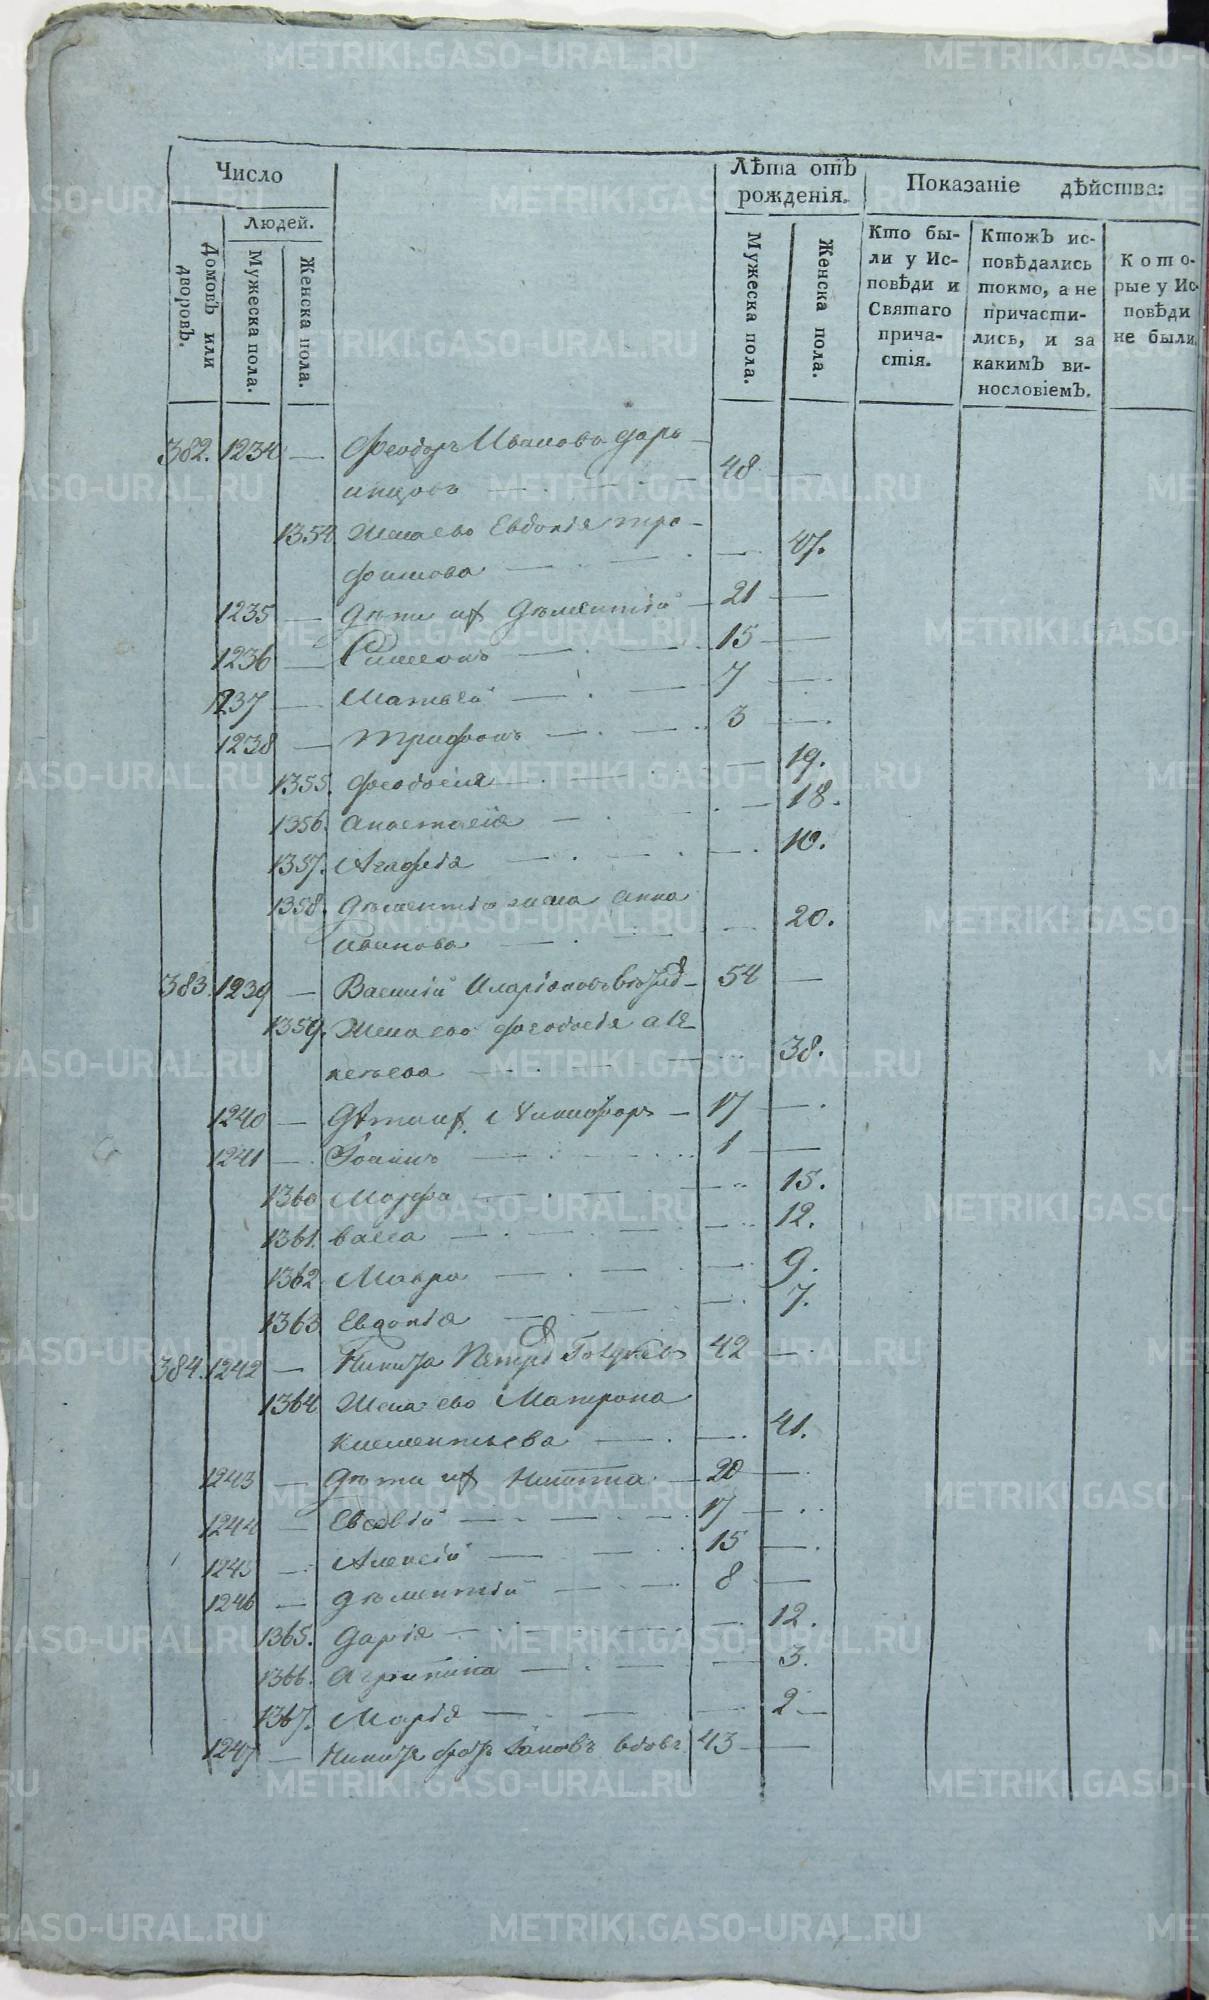 Число
Людей.
Домовъ или дворовъ.
Мужеска пола.
Женска пола.
Лѣта отъ рожденія.
Мужеска пола.
Женска пола.
Показаніе дѣйства:
Кто были у Исповѣди и Святаго причастія.
Ктожъ исповѣдались токмо, а не причастились, и за какимъ винословіемъ.
Которые у Исповѣди не были.
382. 1234 — Феодоръ Ивановъ
48 —
1354 Жена ево Евдокія Тро-
фимова — 47.
1235 — Дѣти их Дѣментій — 21 —
1236 — Симеонъ — 15 —
1237 — Матвѣй — 7 —
1238 — Трифонъ — 3 —
1355. Феодосія — 19.
1356. Анастасія — 18.
1357. Агафія — 10.
1358. Дѣментія жена Анна
Иванова — 20.
383. 1239 — Василій Иларіоновъ 54 —
1359. Жена ево Феодосія Але
ксѣева — 38.
1240 — Дѣти их Никифоръ — 17 —
1241 — Іоаннъ — 1 —
1360 Марфа — 15.
1361. Васса — 12.
1362 Мавра — 9.
1363 Евдокія — 7.
384. 1242 — Никита Петр 42 —
1364 Жена ево Матрона
Клементьева — 41.
1243 — Дѣти их Никита — 20 —
1244 — Евсевій — 17 —
1245 — Алексій — 15 —
1246 — Дѣментій — 8 —
1365. Дарія — 12.
1366. Агрипина — 3.
1367. Марія — 2 —
1247 — Никиты братъ Іаковъ вдовъ 43 —
METRIKI.GASO-URAL.RU